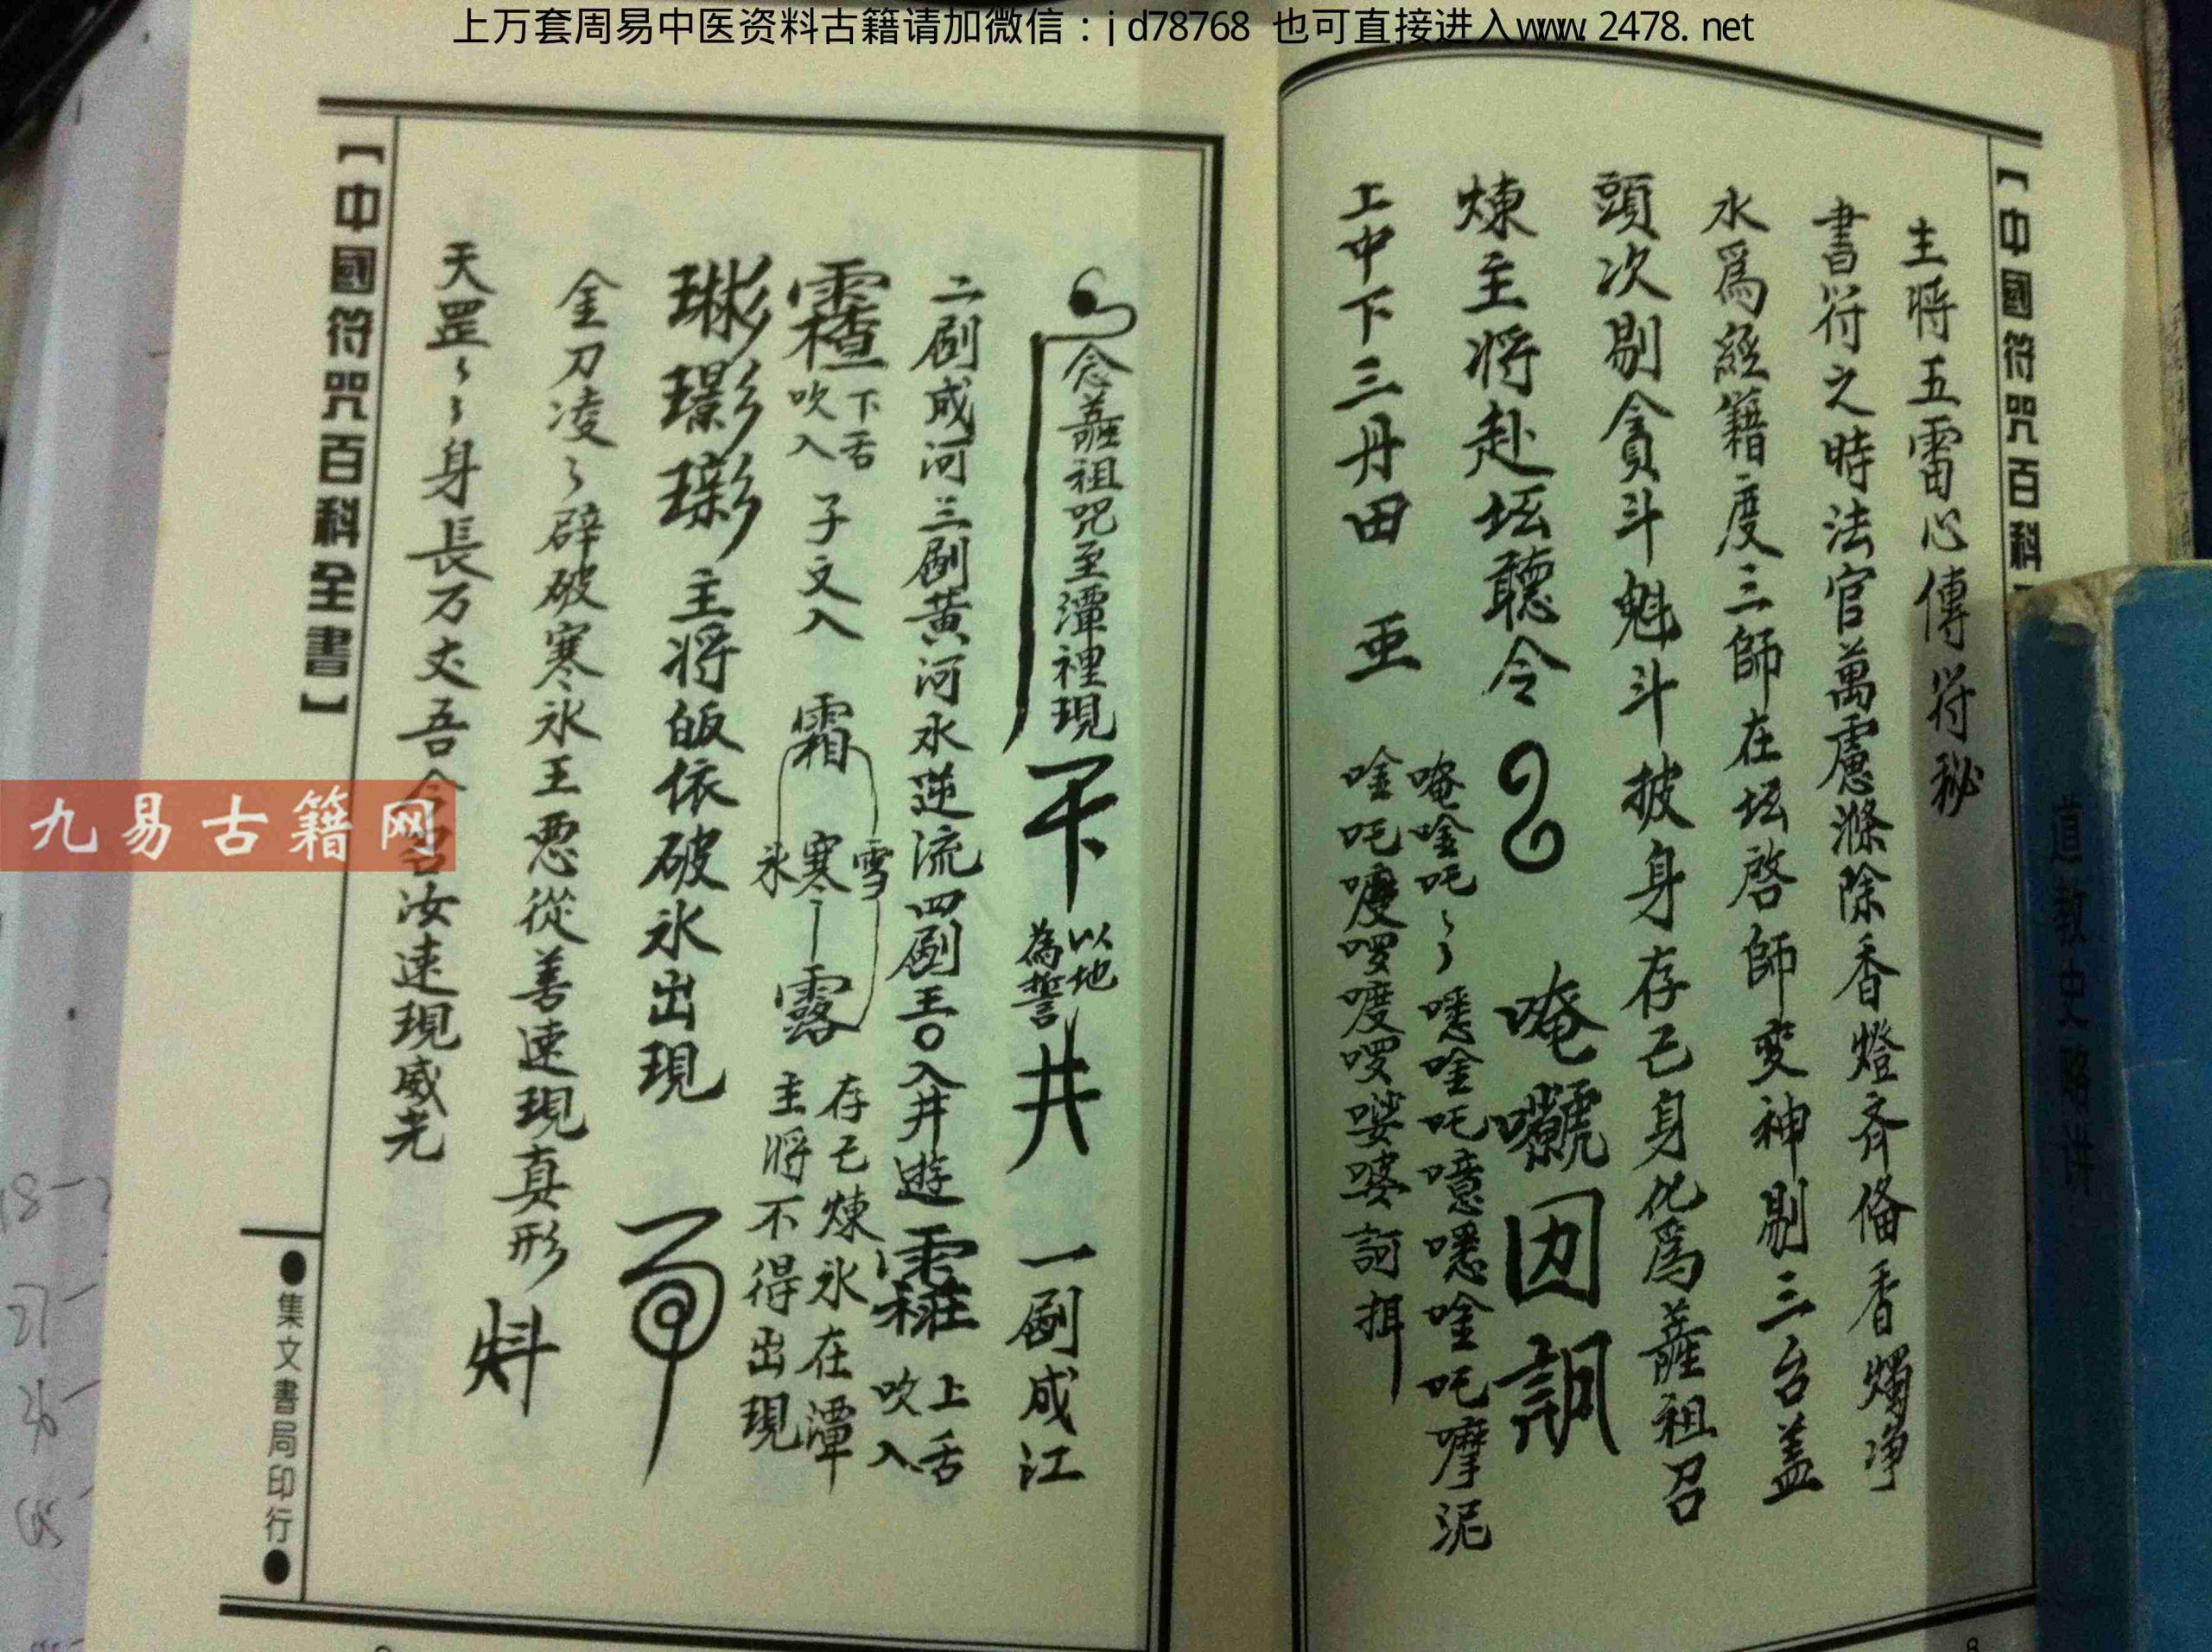 上万套周易中医资料古籍请加微信：jd78768 也可直接进入www.2478.net
【中國符咒百科
主將五雷心傳符秘
書符之時法官萬慮滌除香燈齊俻香燭凈
水爲經籍度三師在坛啓師变神剔三台盖
頭次剔貪斗魁斗披身存己身化爲薩祖召
煉主將赴坛聽令 唵 因
唵唫吒〻〻 唫吒噫 唫吒嚤泥
上中下三丹田 亜
唫吒 訶
念薩祖咒至潭裡現 以地為誓 井 一劌成江
二劌成河三劌黄河水逆流四劌五〇入井遊 上舌吹入
下舌吹入 子文入 霜 雪 寒 氷 露 存己煉氷在潭主將不得出現
主將皈依破氷出現
金刀凌〻〻辟破寒氷王惡從善速現真形
天罡〻〻身長万丈吾令召汝速現威光
【中國符咒百科全書】
●集文書局印行●
九易古籍网
道教史略讲